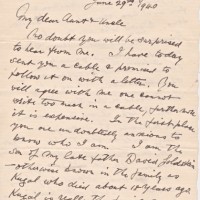 June 29th 1940
My dear Aunt & Uncle
No doubt you will be surprised
to hear from me. I have today
sent you a cable & promised to
follow it on with a letter. You
will agree with me one cannot
write too much in a cable, furthermore
it is expensive. In the first place
you are undoubtedly anxious to
know who I am. I am the
son of my late father David
otherwise known in the family as
Kagal who died about 18 years ago
Kagal is really the